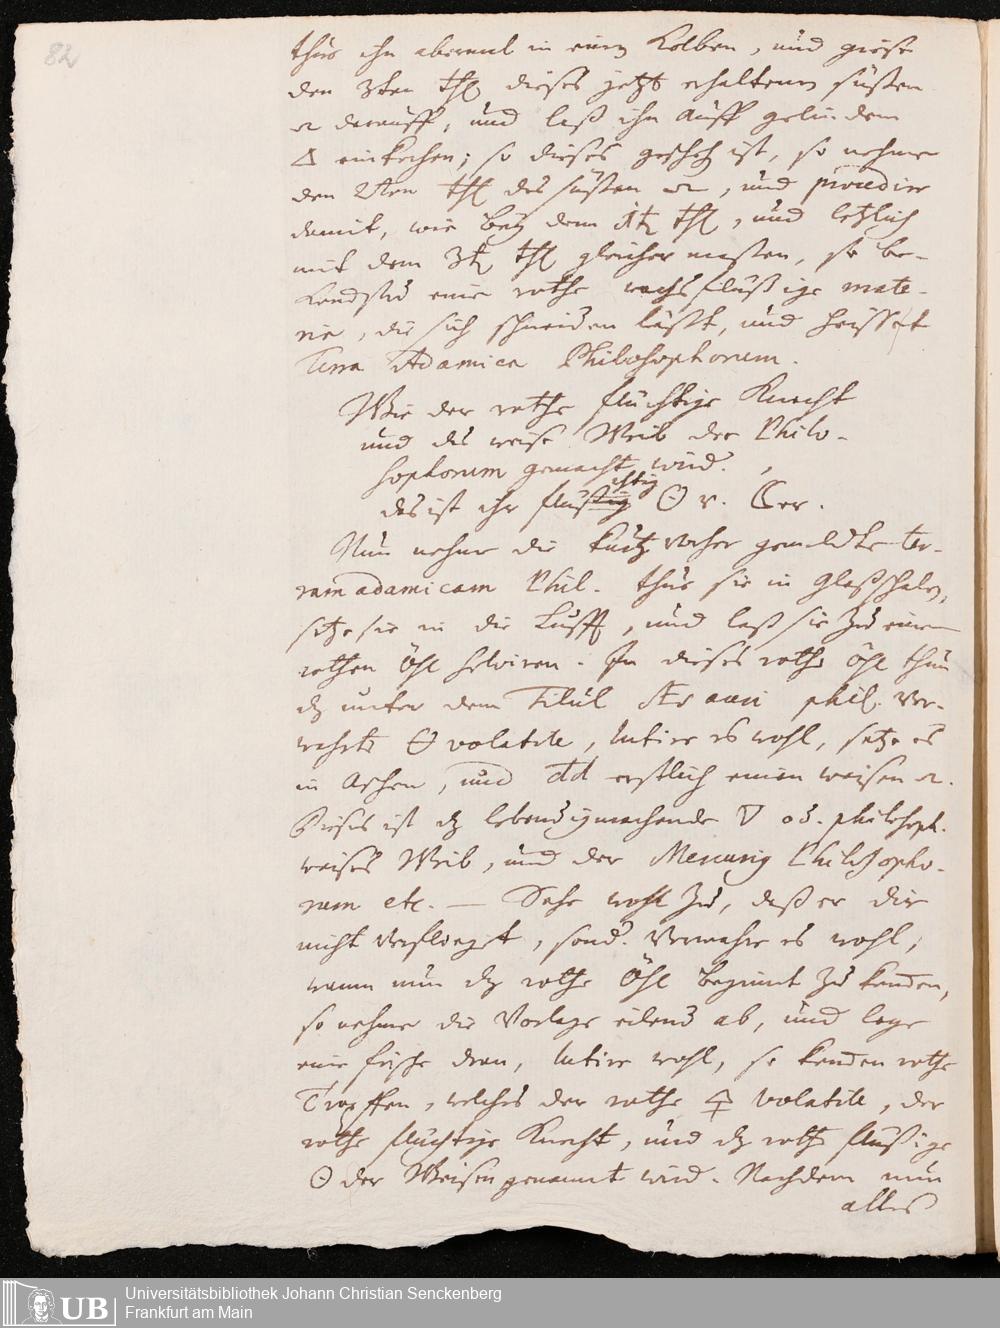 82
thue ihn abermal in einen Kolben, und giese
den 3ten Thl dieses jetzt erhaltenen süßen
darauff, und laß ihn auff gelindem
△ einkochen; so dieses gescheh ist, so nehme
den 2ten Thl des süßen, und procedire
damit, wie bey dem 1t Thl, und letzlich
mit dem 3t Thl gleicher masten, so be-
kombstu eine rothe wachsflüßige mate-
rie, die sich schneiden läßt, und heisset
Terra Adamica Philosophorum.
Wie der rothe flüchtige Knecht
und das weise Weib der Philo-
sophorum gemacht wird.
das ist ihr flüßig chtig ☉ v. ☾er.
Nun nehme die kurtz vorher gemeldte ter-
ram adamicam Phil. thue sie in Glaßschalen,
setze sie in die Lufft, und laß sie zu einem
rothen Öhl solviren. In dieses rothe Öhl thue
dz unter dem Titul auri phil. ver-
wahrte volatile, lutire es wohl, setze es
in Aschen, und dd erstlich einen weisen
Dieses ist dz lebendigmachende ▽ od. philosoph.
weises Weib, und der Mercurig Philosopho-
rum etc. — Sehe wohl zu, daß er dir
nicht verflieget, sond. verwahre es wohl;
wann nun dz rothe Öhl beginnt zu komen,
so nehme die Vorlage eilend ab, und lege
eine frische dran, lutire wohl, so komen rothe
Tropffen, welches der rothe 🜍 volatile, der
rothe flüchtige Knecht, und dz rothe flüßige
☉ der Weisen genannt wird. Nachdem nun
alles
UB
Universitätsbibliothek Johann Christian Senckenberg
Frankfurt am Main